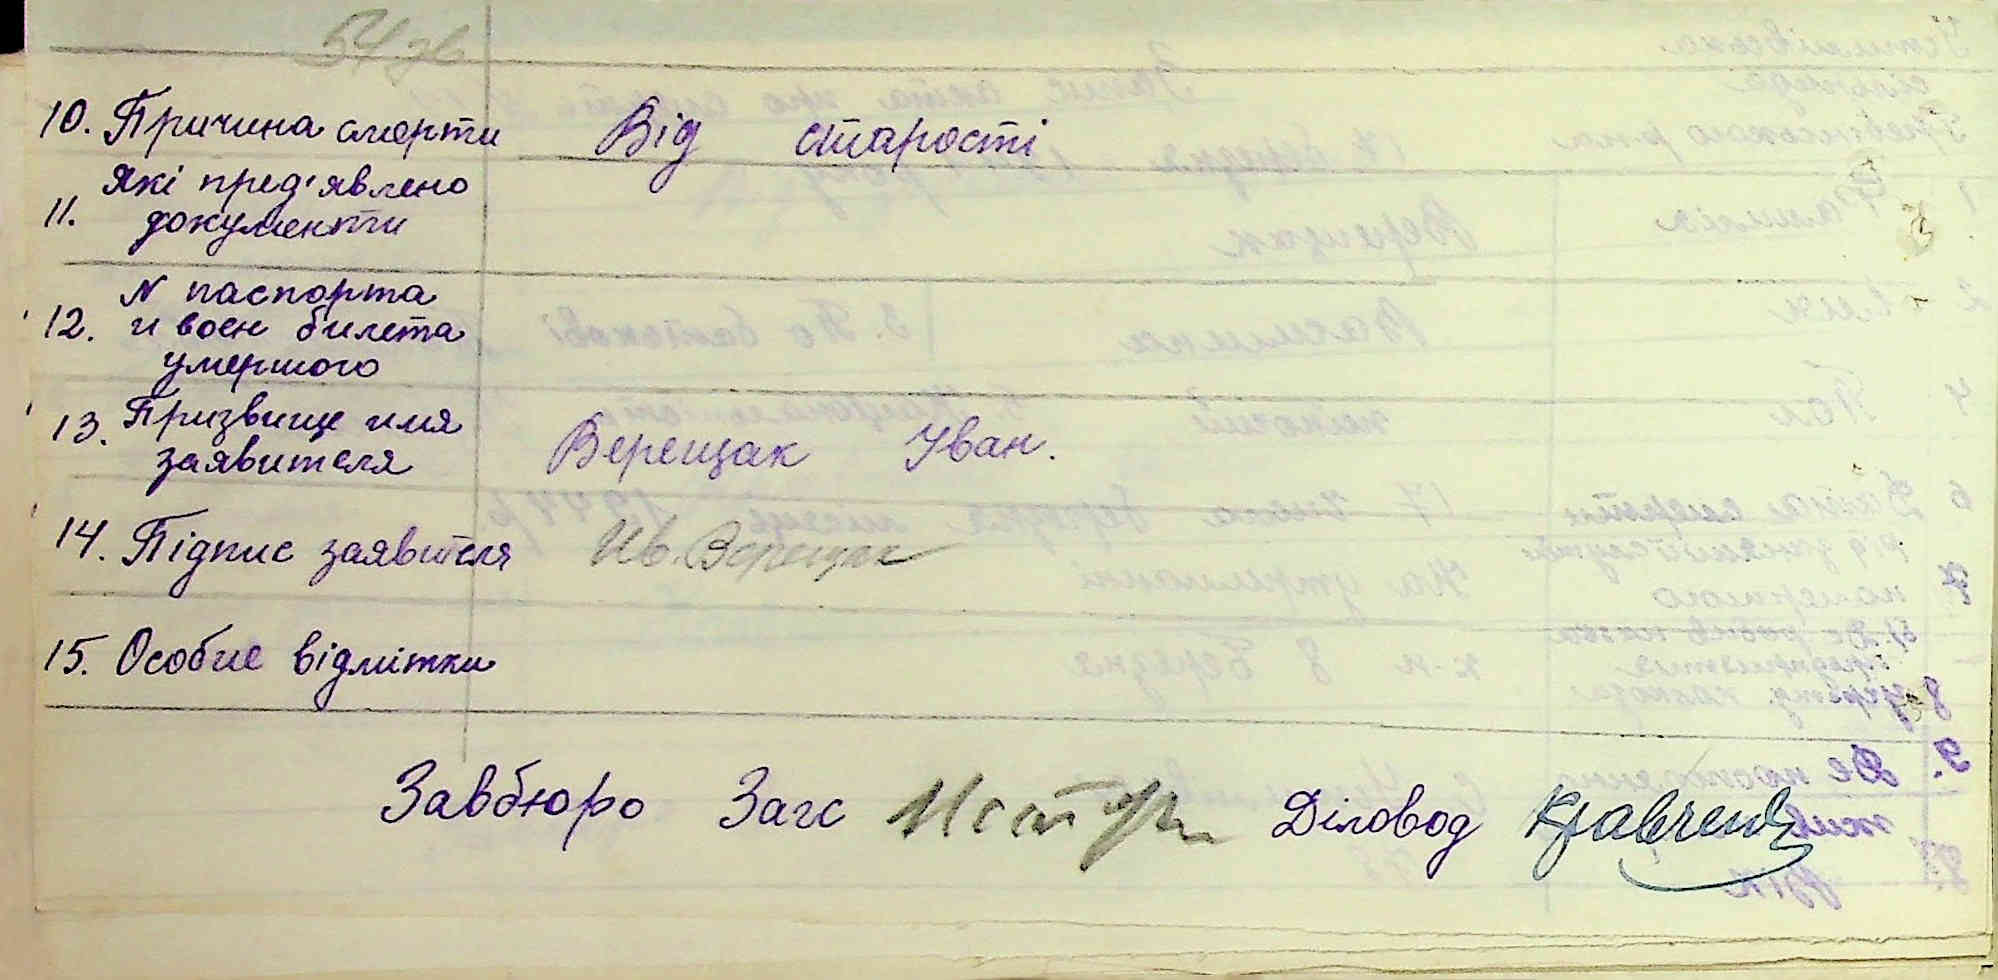 54 зв
10. Причина смерти Від старості
Які пред'явлено
11. документи
N паспорта
12. и воєн билета
умершого
13. Призвище имя
заявителя Верещак Іван.
14. Підпис заявителя Ив. Верещак
15. Особие відмітки
Завбюро Загс Діловод Кравченко